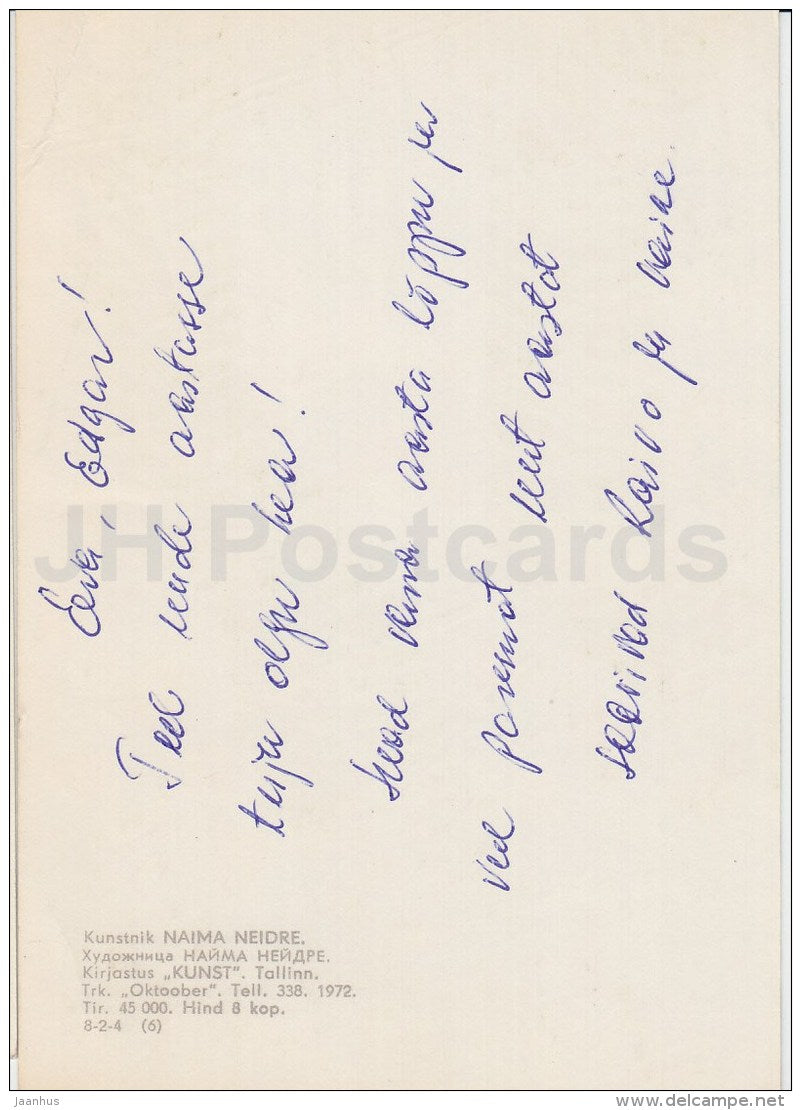 Eevi, Edgar!
Teel uude aastasse
tuju olgu hea!
Head vana aasta lõppu ja
veel paremat uut aastat
soovivad Raivo ja Maire.
Kunstnik NAIMA NEIDRE.
Художница НАЙМА НЕЙДРЕ.
Kirjastus „KUNST". Tallinn.
Trk. „Oktoober". Tell. 338. 1972.
Tir. 45 000. Hind 8 kop.
8-2-4 (6)
JH Postcards
jaanhus
www.delcampe.net